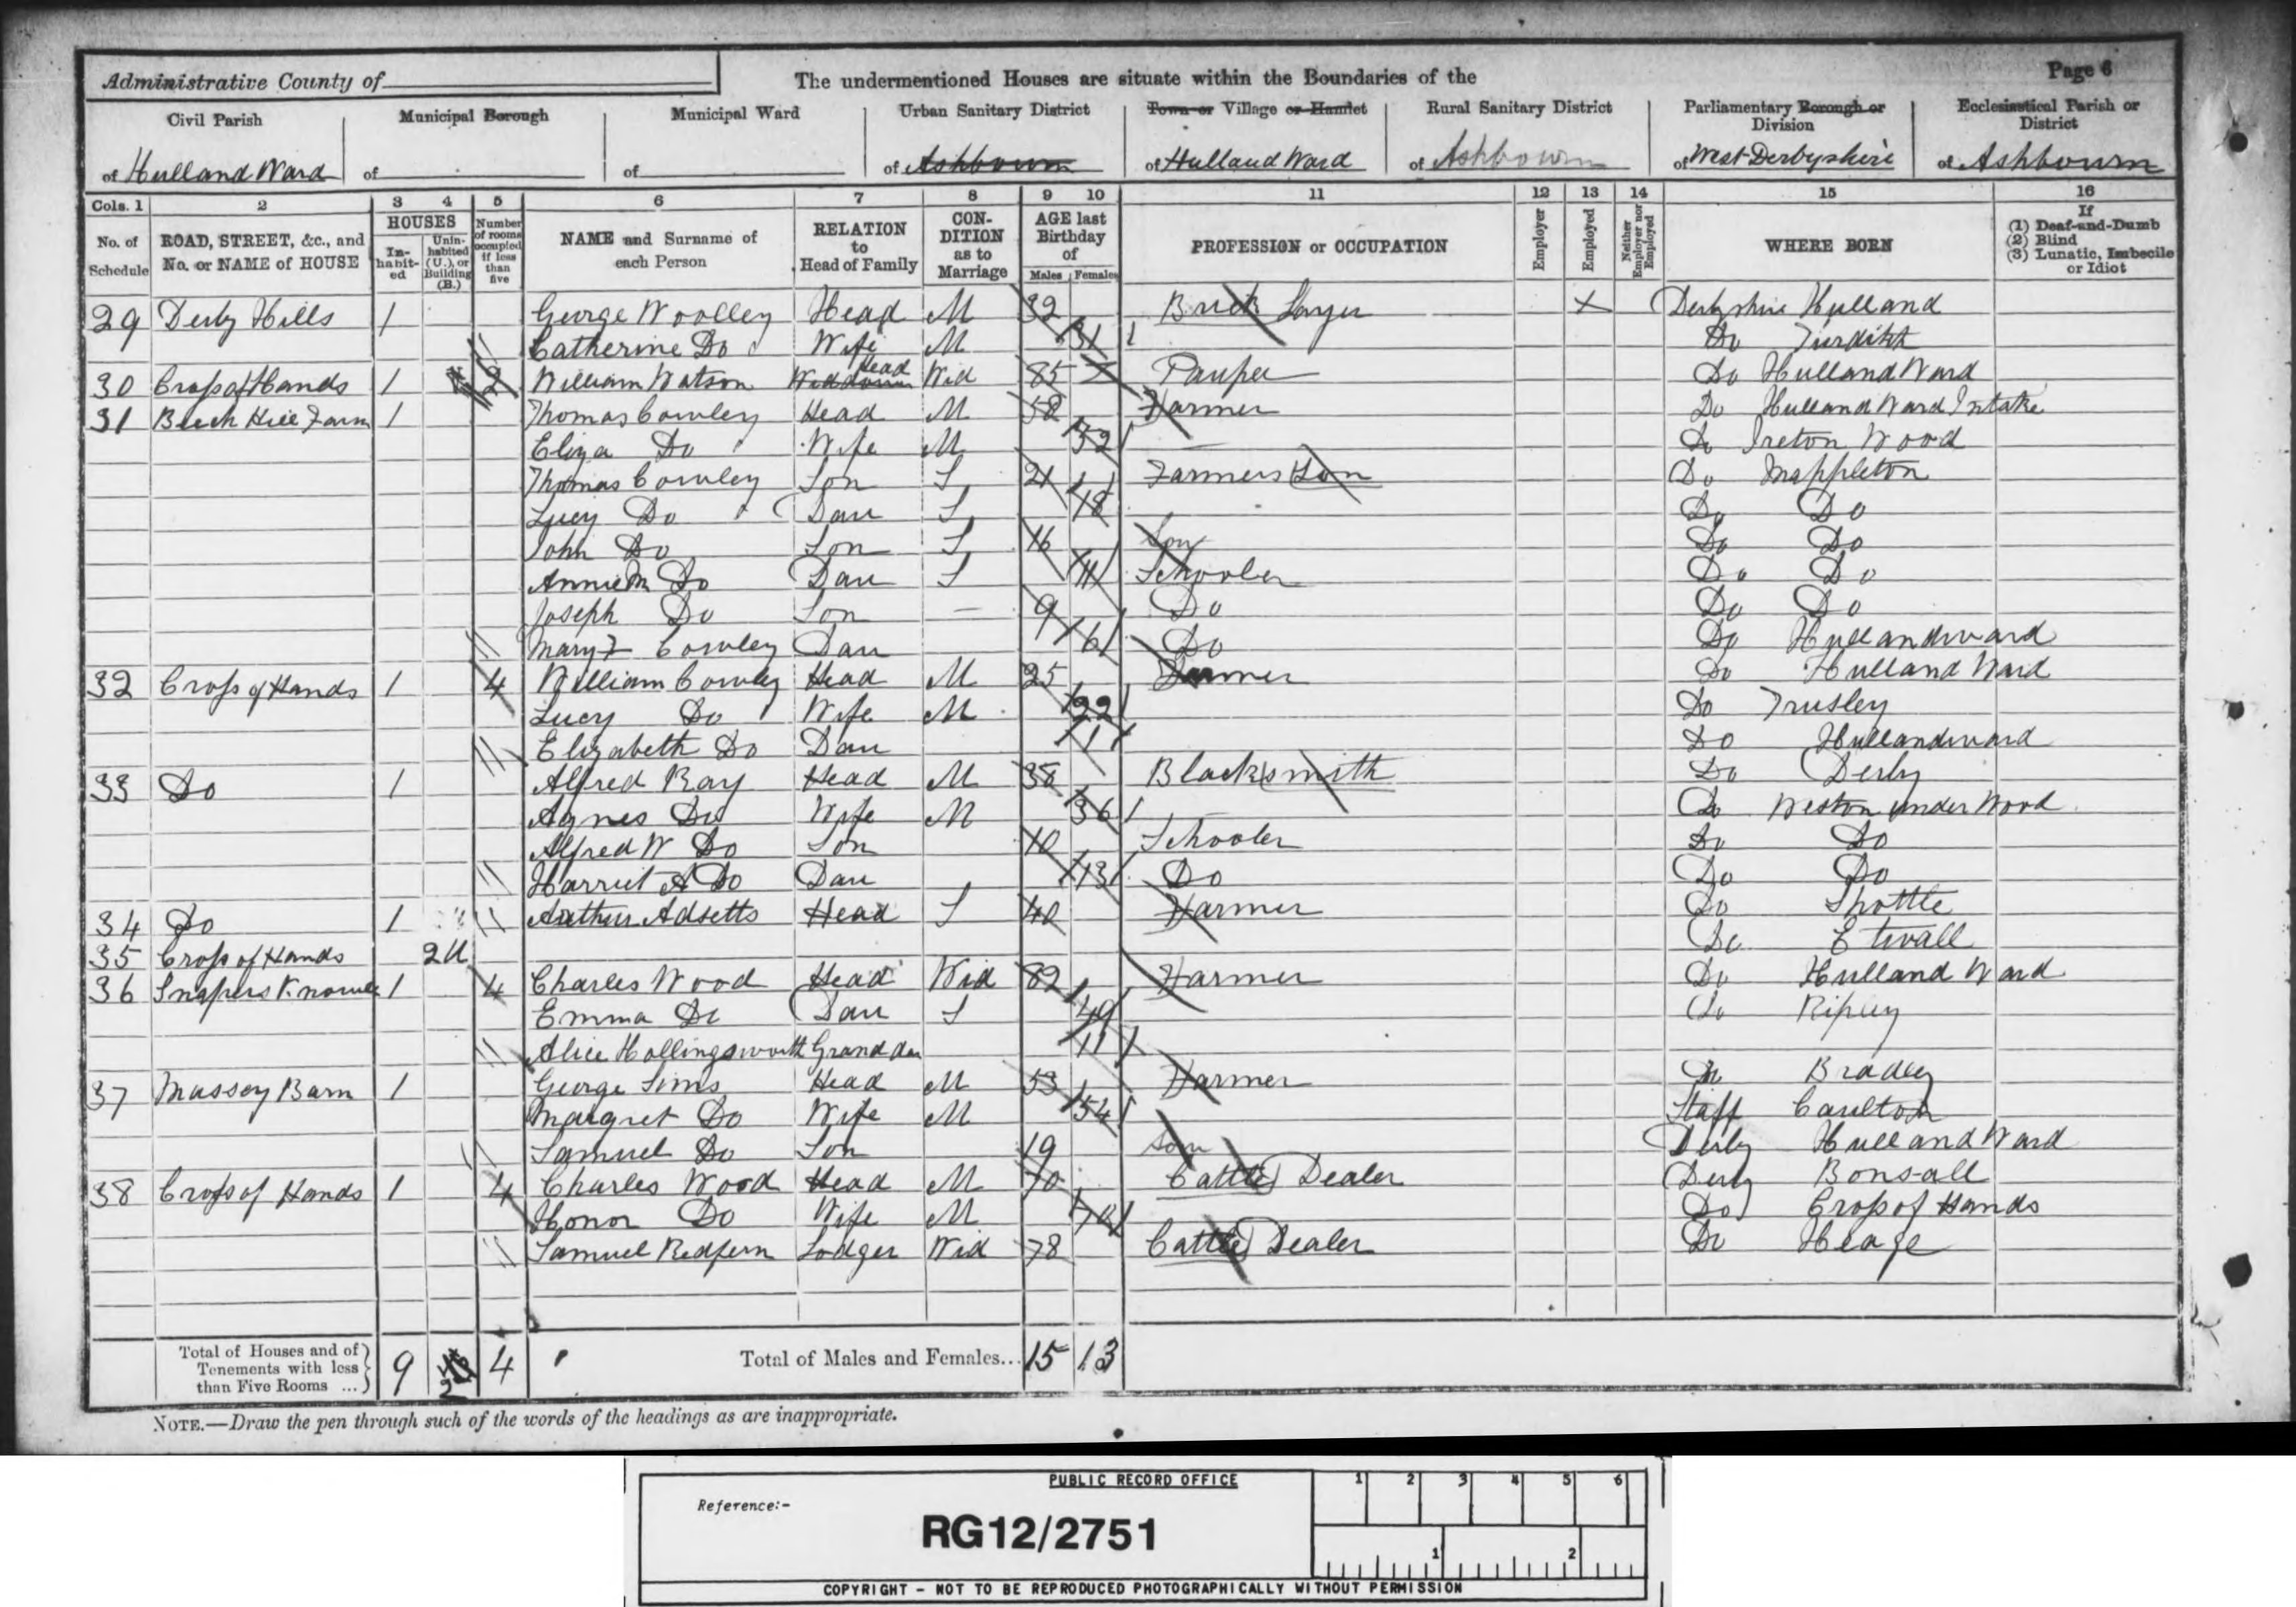 Administrative County of
The undermentioned Houses are situate within the Boundaries of the
Page 6
Civil Parish
of Hulland Ward
Municipal Borough
of
Municipal Ward
of
Urban Sanitary District
of Ashbourn
Town or Village or Hamlet
of Hulland Ward
Rural Sanitary District
of Ashbourn
Parliamentary Borough or Division
of West Derbyshire
Ecclesiastical Parish or District
of Ashbourn
Cols. 1 2 3 4 5 6 7 8 9 10 11 12 13 14 15 16
No. of Schedule
ROAD, STREET, &c., and No. or NAME of HOUSE
HOUSES
In-habit-ed
Unin-habited (U.), or Building (B.)
Number of rooms occupied if less than five
NAME and Surname of each Person
RELATION to Head of Family
CON-DITION as to Marriage
AGE last Birthday of
Males Females
PROFESSION or OCCUPATION
Employer
Employed
Neither Employer nor Employed
WHERE BORN
If
(1) Deaf-and-Dumb
(2) Blind
(3) Lunatic, Imbecile or Idiot
29 Derby Hills 1 George Woolley Head M 32 Brick Layer X Derbyshire Hulland
Catherine Do Wife M 31 Do
30 Cross of Hands 1 2 William Watson Widdower Head Wid 85 Pauper Do Hulland Ward
31 Beech Hill Farm 1 Thomas Cowley Head M 58 Farmer Do Hulland Ward Intake
Eliza Do Wife M 52 Do Ireton Wood
Thomas Cowley Son S 21 Farmers Son Do Mappleton
Lucy Do Dau S 18 Do Do
John Do Son S 16 Son Do Do
Annie M Do Dau S 11 Schooler Do Do
Joseph Do Son — 9 Do Do Do
Mary F Cowley Dau 6 Do Do Hullandward
32 Cross of Hands 1 4 William Cowley Head M 25 Farmer Do Hulland Ward
Lucy Do Wife M 22 Do Trusley
Elizabeth Do Dau 1 Do Hullandward
33 Do 1 Alfred Ray Head M 38 Blacksmith Do Derby
Agnes Do Wife M 36 Do Weston under Wood
Alfred W Do Son 10 Schooler Do Do
Harriet A Do Dau 13 Do Do Do
34 Do 1 Arthur Adsetts Head S 40 Farmer Do Shottle
35 Cross of Hands 2U Do Etwall
36 Snapers Knowle 1 4 Charles Wood Head Wid 82 Farmer Do Hulland Ward
Emma Do Dau S 49 Do Ripley
Alice Hollingsworth Grand dau 11
37 Massey Barn 1 George Sims Head M 53 Farmer Do Bradley
Margret Do Wife M 54 Staff Caulton
Samuel Do Son 19 Son Derby Hulland Ward
38 Cross of Hands 1 4 Charles Wood Head M 70 Cattle Dealer Derby Bonsall
Honor Do Wife M Do Cross of Hands
Samuel Redfern Lodger Wid 78 Cattle Dealer Do Heage
Total of Houses and of Tenements with less than Five Rooms ... 9 2 4
Total of Males and Females... 15 13
NOTE.—Draw the pen through such of the words of the headings as are inappropriate.
PUBLIC RECORD OFFICE
Reference:-
RG12/2751
1 2 3 4 5 6
1 2
COPYRIGHT - NOT TO BE REPRODUCED PHOTOGRAPHICALLY WITHOUT PERMISSION